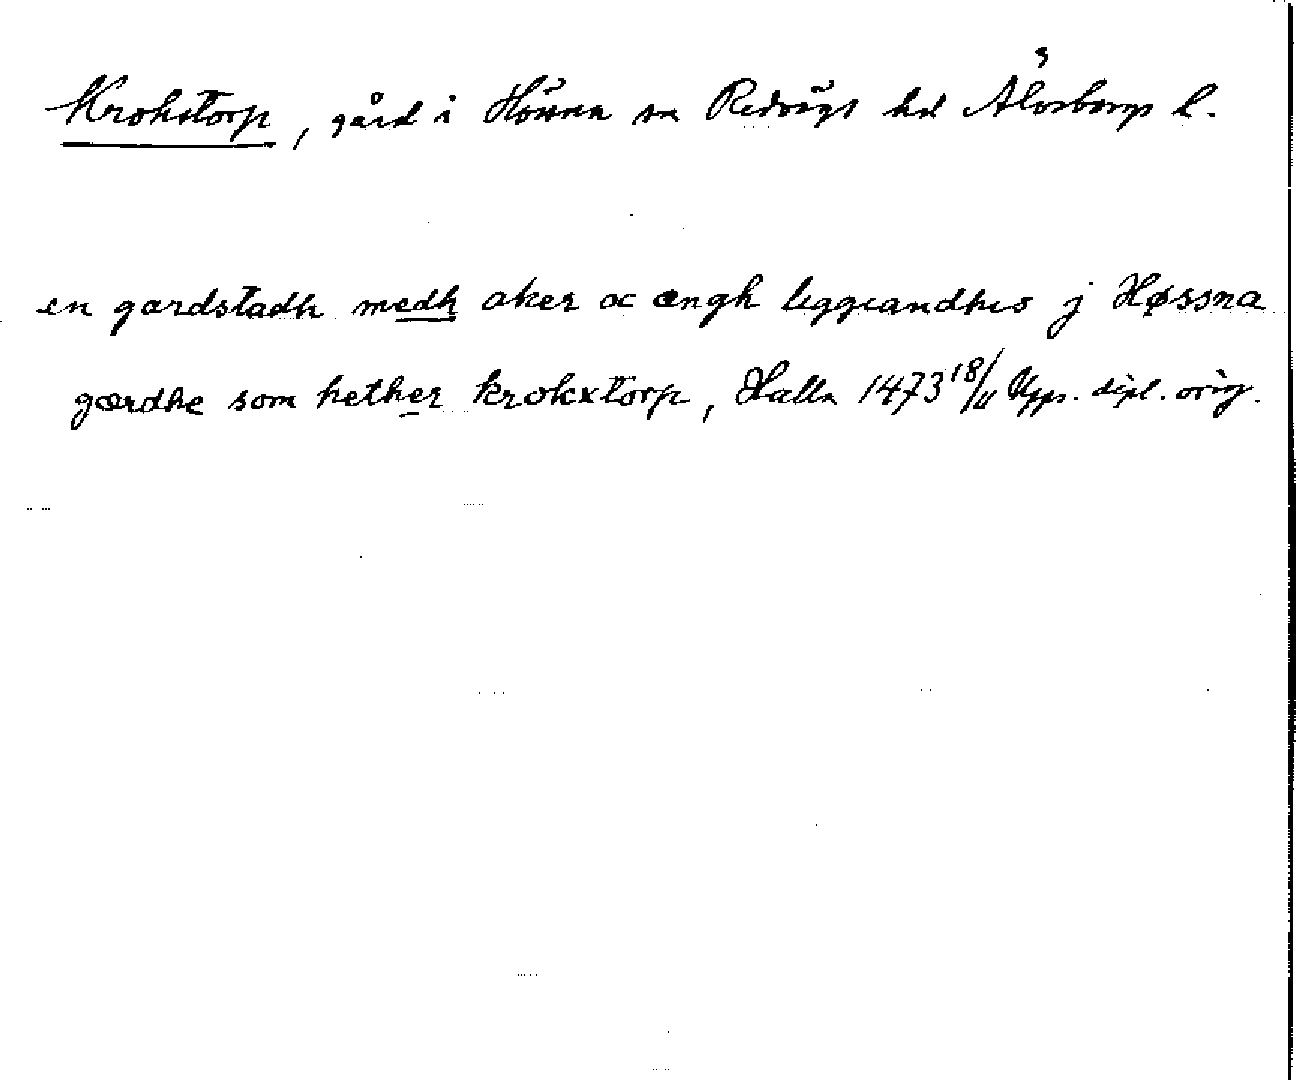 Krokstorp, gård i Hössna sn Redvägs hd Älvsborgs l.
en gardstadh medh aker oc ængh liggiandhes j Høssna
gærdhe som hether krokxtorp, Halla 1473 18/11 Upps. dipl. orig.